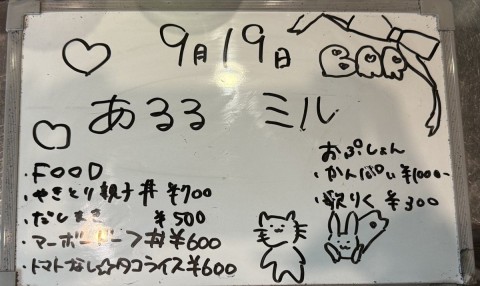 9月19日
あるる ミル
FOOD
・やきとり親子丼 ¥700
・だしまき ¥500
・マーボードーフ丼 ¥600
・トマトなし☆タコライス ¥600
おぷしょん
・かんぱい ¥1000-
・歌りく ¥300